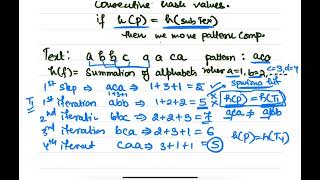 consecutive hash values.
if h(P) = h(subtext)
then we move pattern comp
Text: a b b c a ca pattern: aca
h(f) = summation of alphabet values a=1, b=2, c=3, d=4
1st step → aca → 1+3+1 = 5 spurious hit
1+3+1
1st iteration abb → 1+2+2 = 5 h(P) = h(T1)
2nd iteratin bbc → 2+2+3 = 7 aca ≠ abb
3rd iteration bca → 2+3+1 = 6
4th iterat caa → 3+1+1 = 5 h(P) = h(T4)
T1